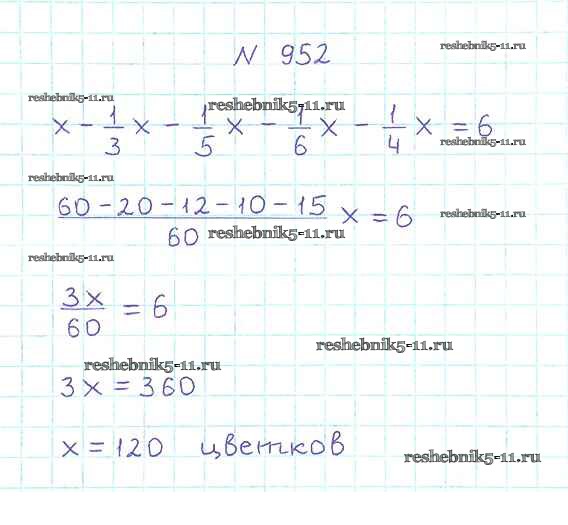 N 952
reshebnik5-11.ru
reshebnik5-11.ru
reshebnik5-11.ru
x - 1/3 x - 1/5 x - 1/6 x - 1/4 x = 6
reshebnik5-11.ru
reshebnik5-11.ru
60 - 20 - 12 - 10 - 15 / 60 x = 6
reshebnik5-11.ru
reshebnik5-11.ru
reshebnik5-11.ru
3x/60 = 6
reshebnik5-11.ru
reshebnik5-11.ru
3x = 360
x = 120 цветков
reshebnik5-11.ru